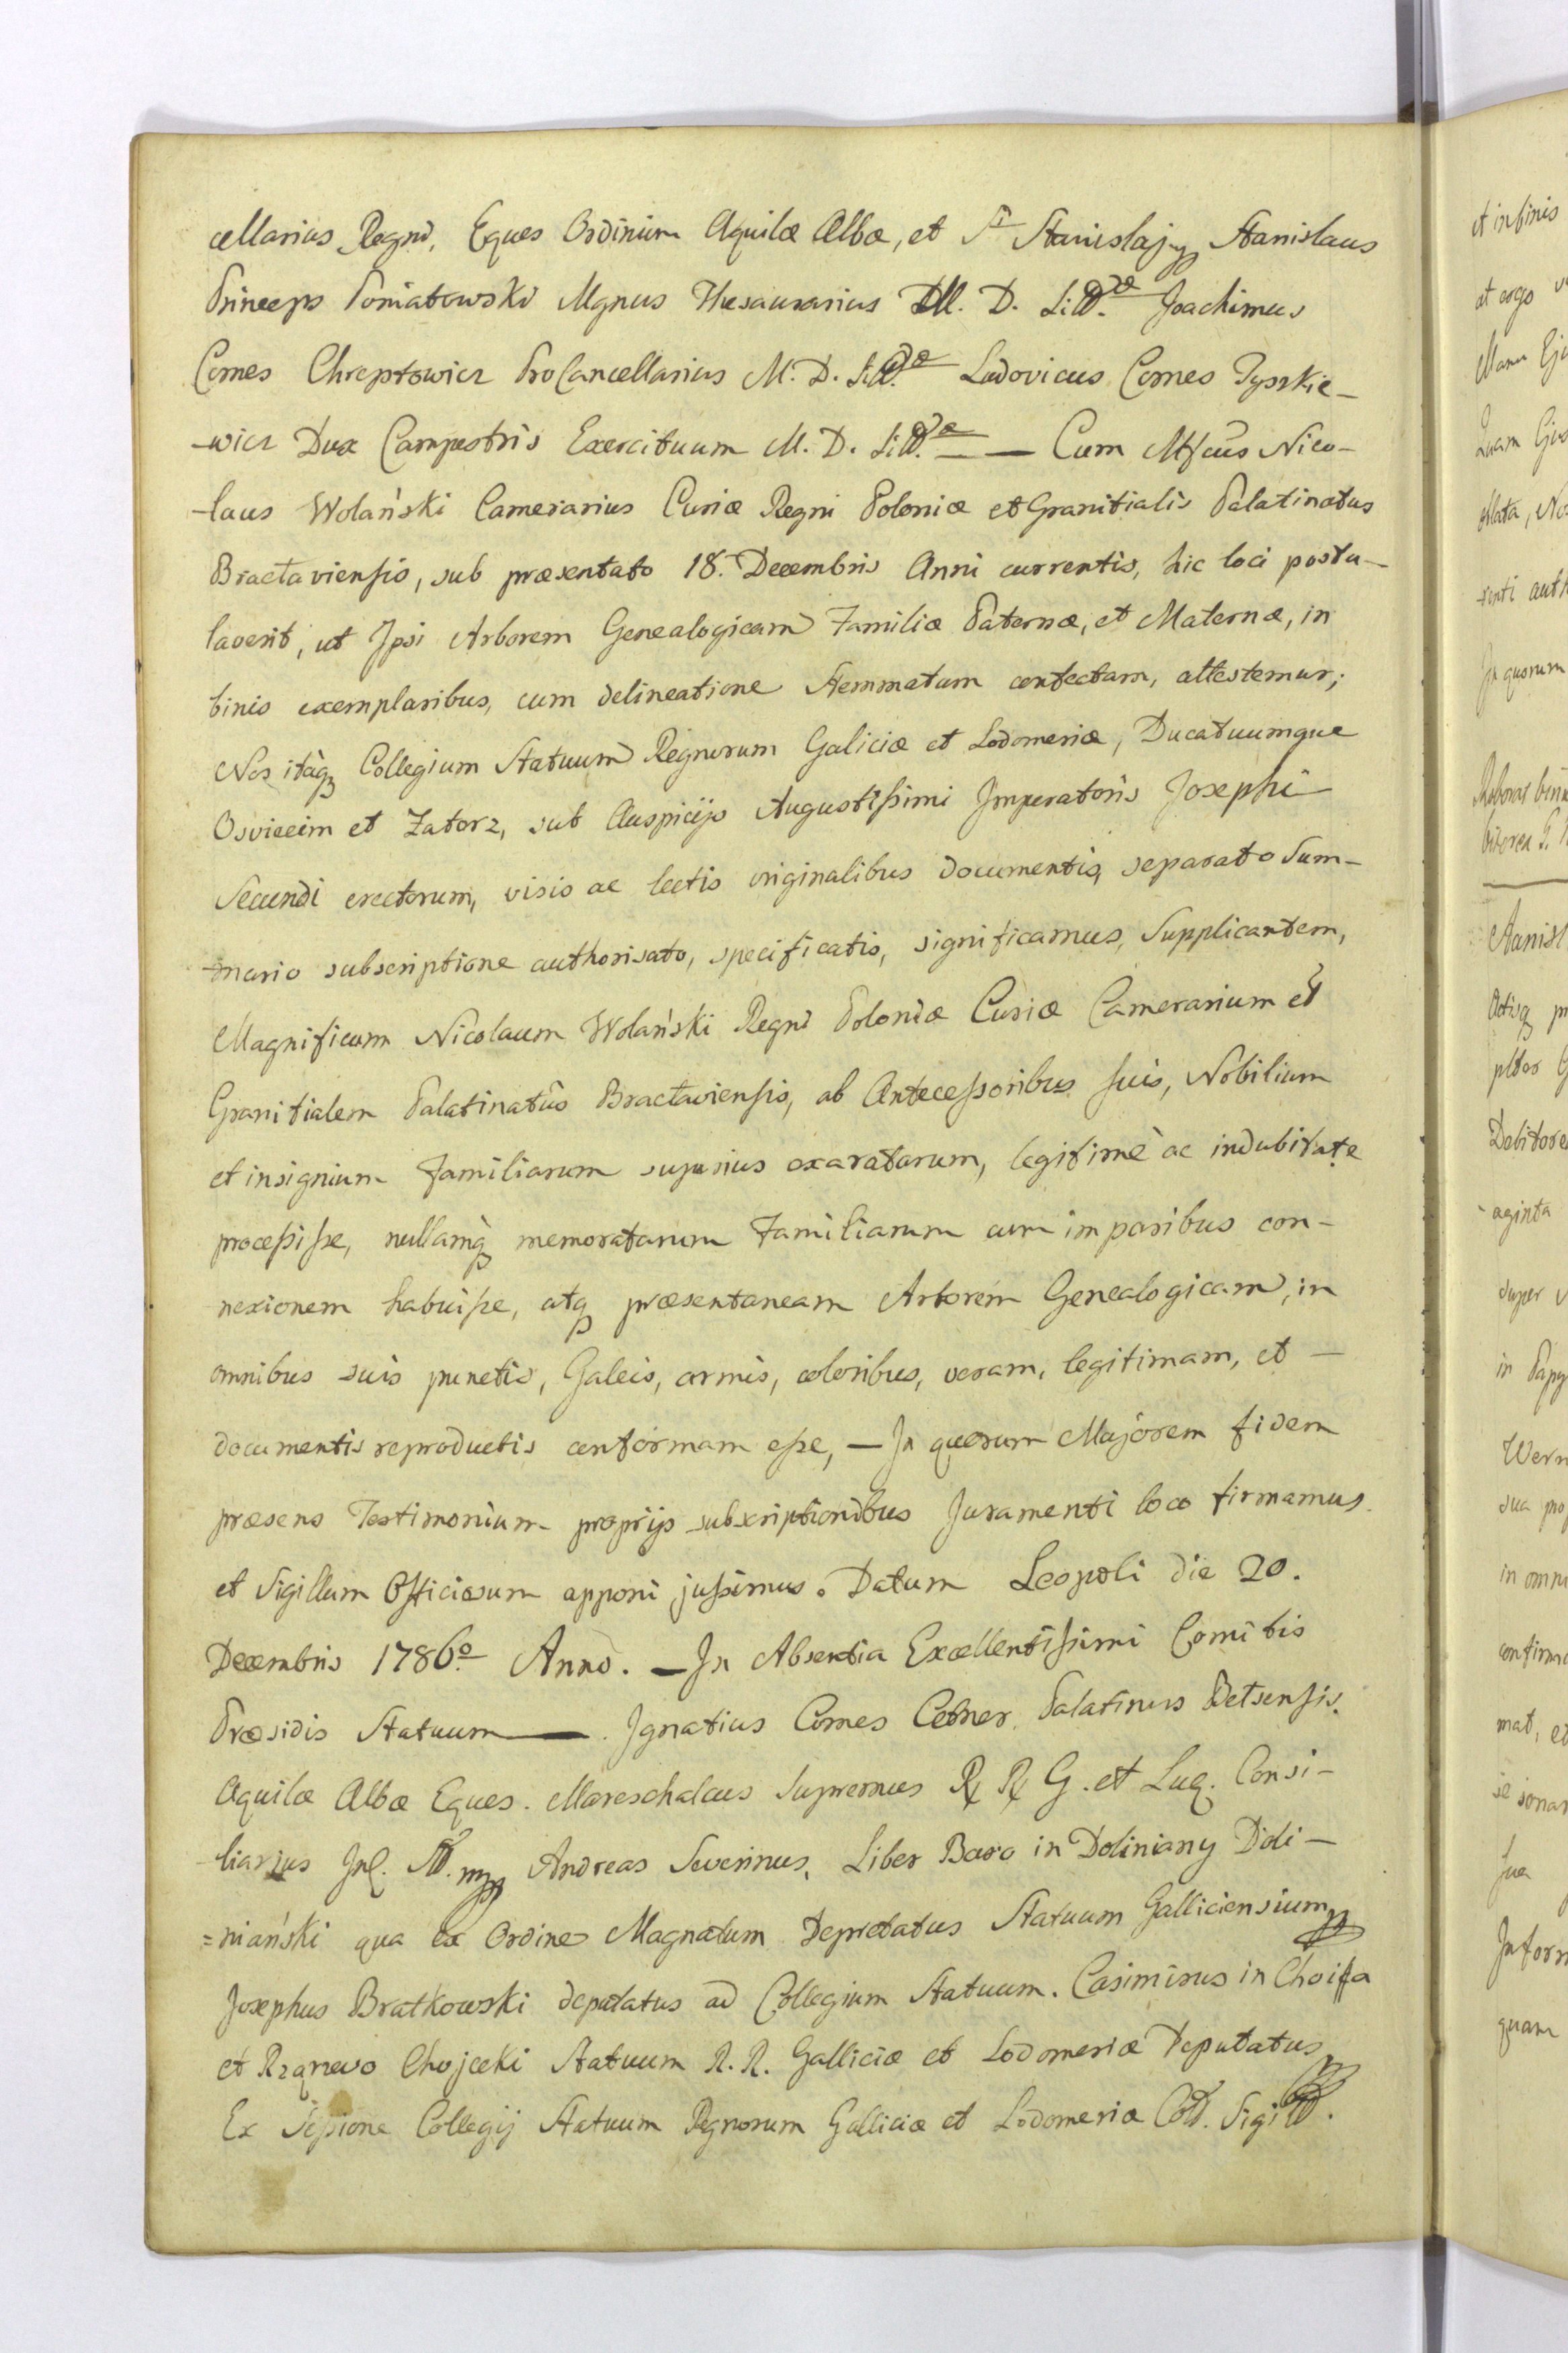 cellarius Regni, Eques Ordinium Aquilæ Albæ, et Sti Stanislaj Stanislaus
Princeps Poniatowski Mgnus Thesaurarius M. D. Littdæ Joachimus
Comes Chreptowicz ProCancellarius M. D. Littdæ Ludovicus Comes Tyszkie-
-wicz Dux Campestris Exercituum M. D. Littdæ — Cum Mfcus Nico-
-laus Wolański Camerarius Curiæ Regni Poloniæ et Granitialis Palatinatus
Bractaviensis, sub præsentato 18. Decembris Anni currentis, hic loci postu-
laverit, ut Ipsi Arborem Genealogicam Familiæ Paternæ, et Maternæ, in
binis exemplaribus, cum delineatione Stemmatum confectam, attestemur;
Nos itaq Collegium Statuum Regnorum Galiciæ et Lodomeriæ, Ducatuumque
Osvieeim et Zatorz, sub Auspicijs Augustissimi Imperatoris Josephi
Secundi erectorum, visis ac lectis originalibus documentis, separato Sum-
-mario subscriptione authorisato, specificatis, significamus, Supplicantem,
Magnificum Nicolaum Wolański Regni Poloniæ Curiæ Camerarium et
Granitialem Palatinatûs Bractaviensis, ab Antecessoribus suis, Nobilium
et insignium Familiarum superius exaratarum, legitimè ac indubitate
processisse, nullamq memoratarum Familiarum cum imparibus con-
nexionem habuisse, atq præsentaneam Arborem Genealogicam, in
omnibus suis punctis, Galeis, armis, coloribus, veram, legitimam, et —
documentis reproductis conformam esse, — In quorum Majorem fidem
præsens Testimonium proprijs subscriptionibus Juramenti loco firmamus
et Sigillum Officiosum apponi jussimus. Datum Leopoli die 20.
Decembris 1786o Anno. — In Absentia Excellentissimi Comitis
Præsidis Statuum — Ignatius Comes Cetner Palatinus Betsensis.
Aquilæ Albæ Eques. Mareschalcus Supremus R R G. et Lug. Consi-
-liarius Andreas Severinus, Liber Baro in Doliniany Doli-
=niański qua ex Ordine Magnatum Deputatus Statuum Galliciensium
Josephus Bratkowski deputatus ad Collegium Statuum. Casimirus in
et Chojecki Statuum R. R. Galliciæ et Lodomeriæ Deputatus
Ex Sessione Collegij Statuum Regnorum Galliciæ et Lodomeriæ
et infinis
at ergo
Quam
In quorum
Debitore
aginta
super
in
sua
in omni
mat, et
sua
Inform
quam